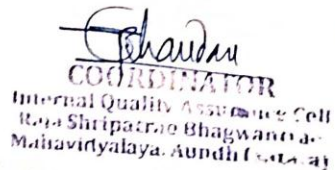 COORDINATOR
Internal Quality Assurance Cell
Raja Shripatrao Bhagwantrao
Mahavidyalaya, Aundh (Satara)